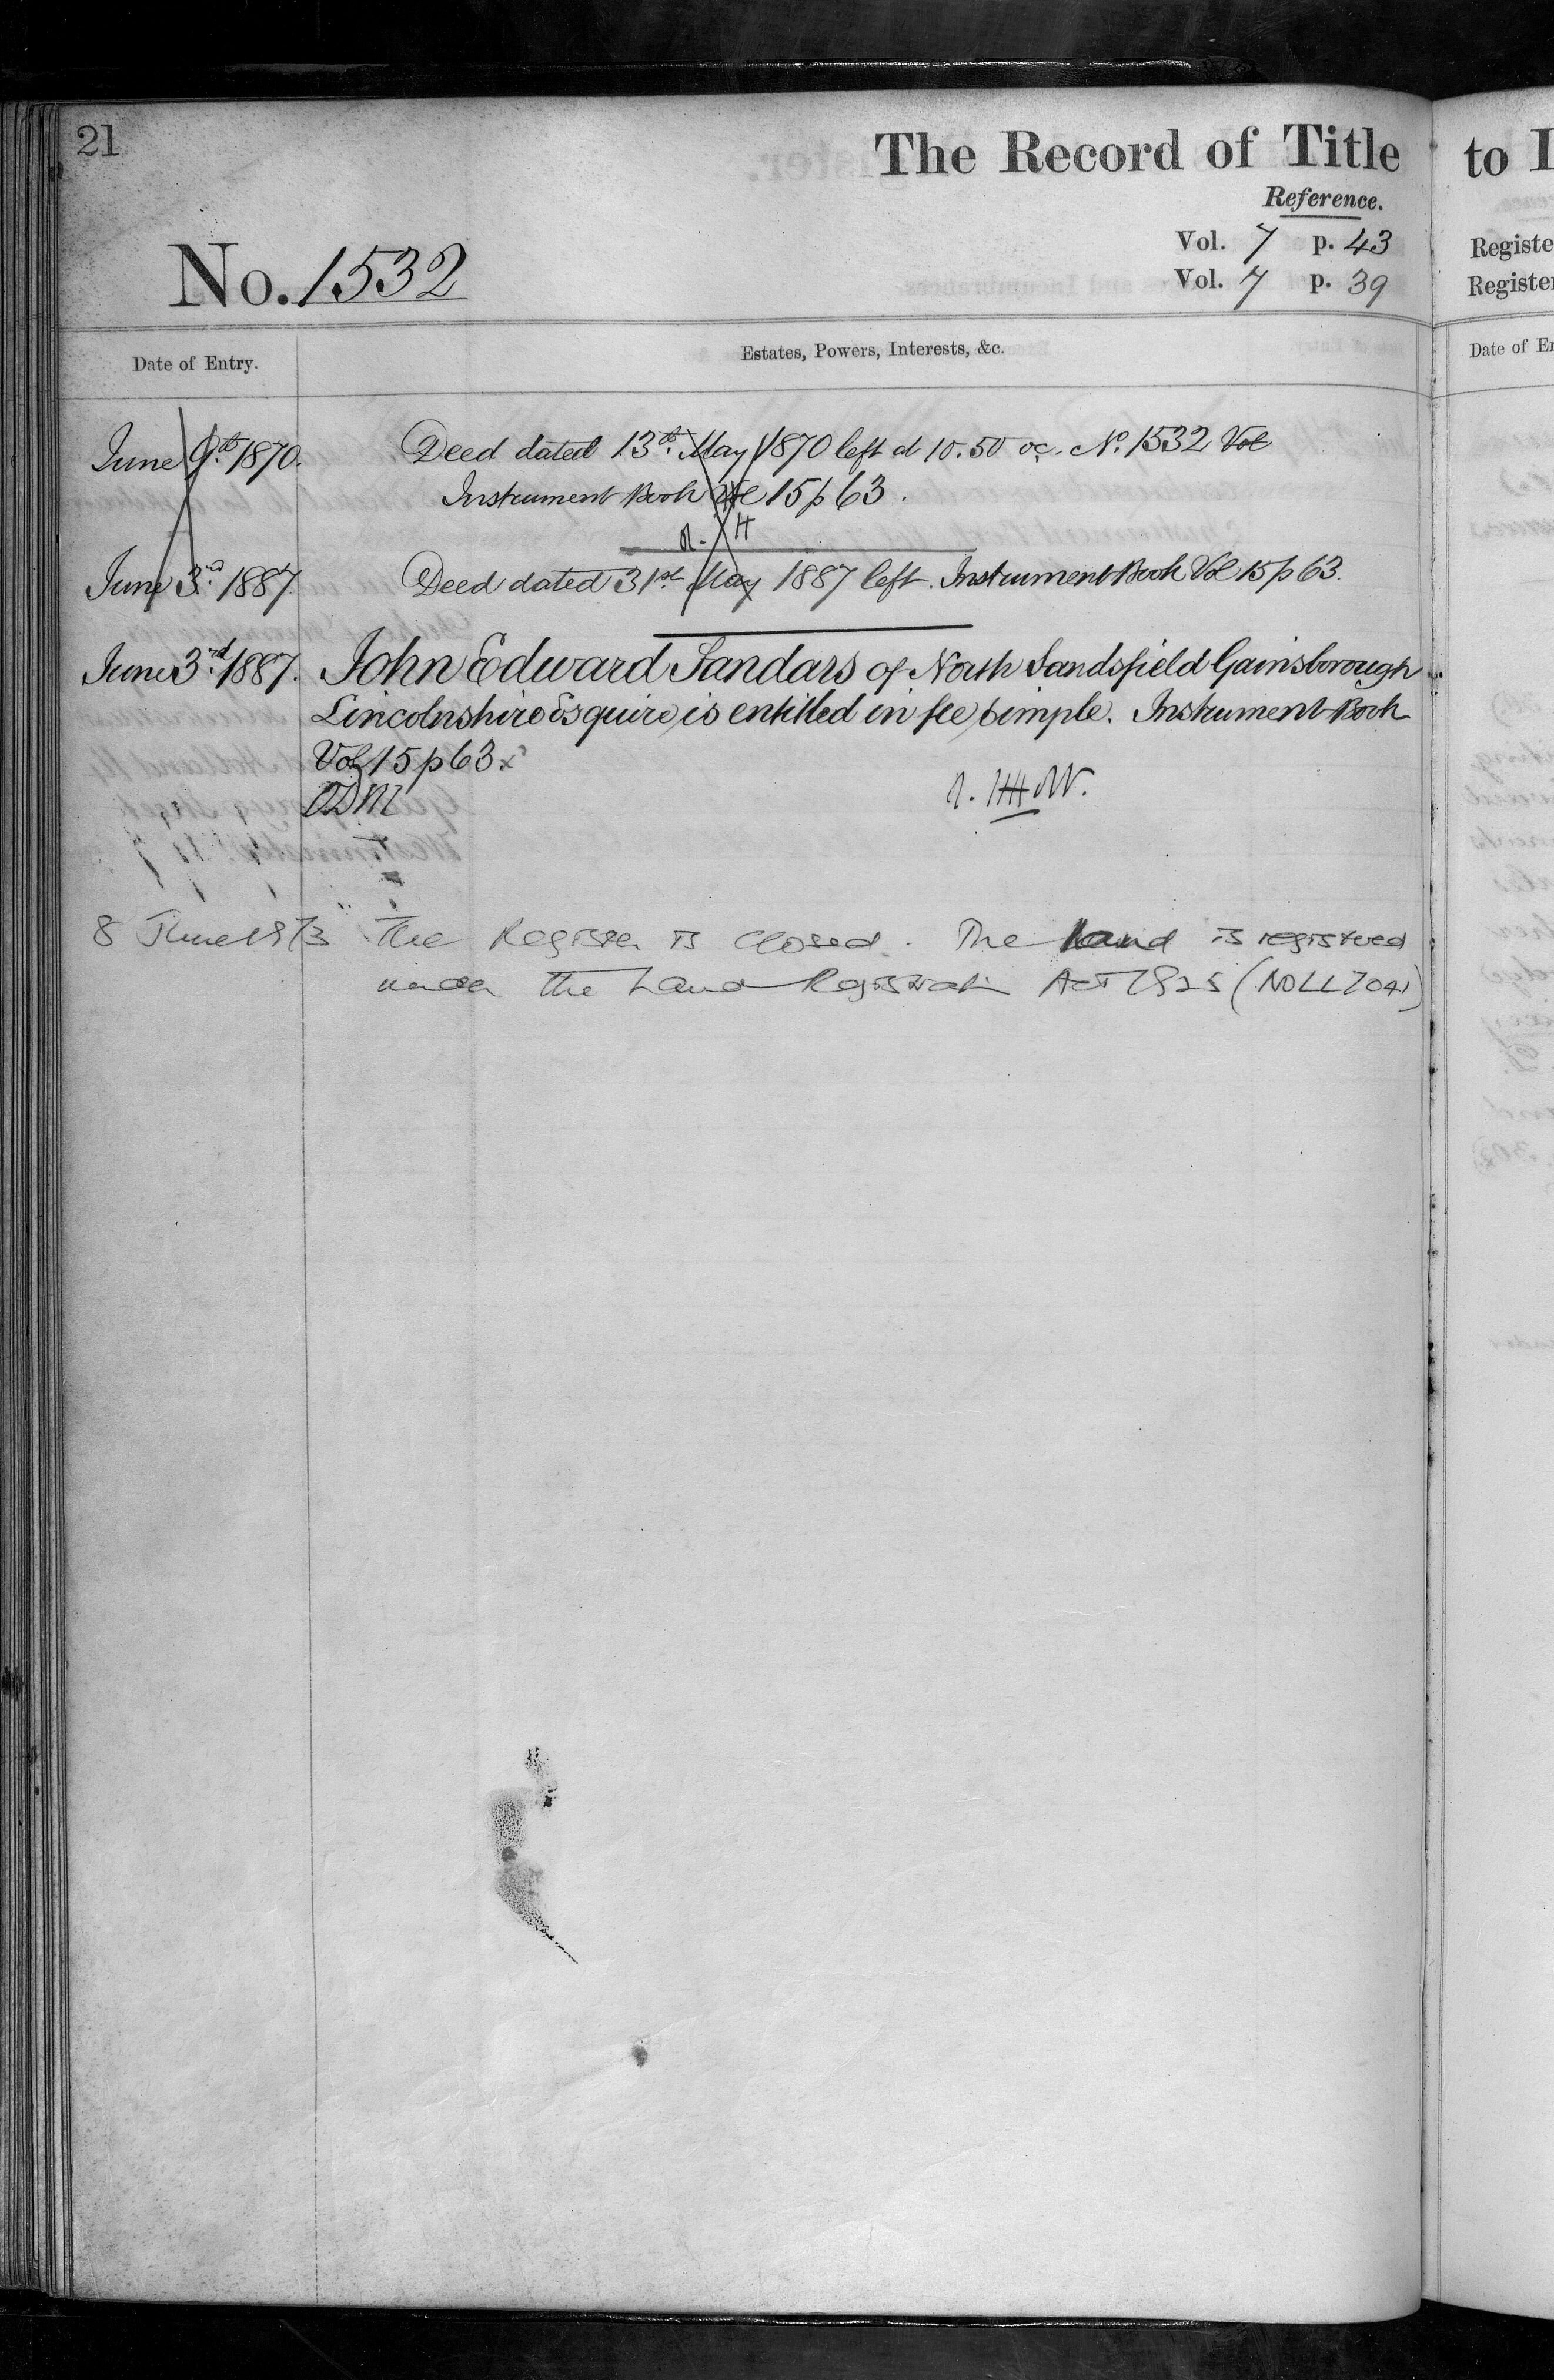 21
The Record of Title
Reference.
Vol. 7 p. 43
Vol. 7 p. 39
No. 1532
Date of Entry.
Estates, Powers, Interests, &c.
June 9th 1870.
Deed dated 13th May 1870 left at 10.50 oc. No. 1532 Vol
Instrument Book Vol 15 p 63.
June 3rd 1887.
Deed dated 31st May 1887 left. Instrument Book Vol 15 p 63.
June 3rd 1887.
John Edward Sandars of North Sandsfield Gainsborough
Lincolnshire Esquire is entitled in fee simple. Instrument Book
Vol 15 p 63.
8 June 1973
The Register is closed. The land is registered
under the Land Registration Act 1925 (NO LL7041)
to
Registe
Register
Date of En